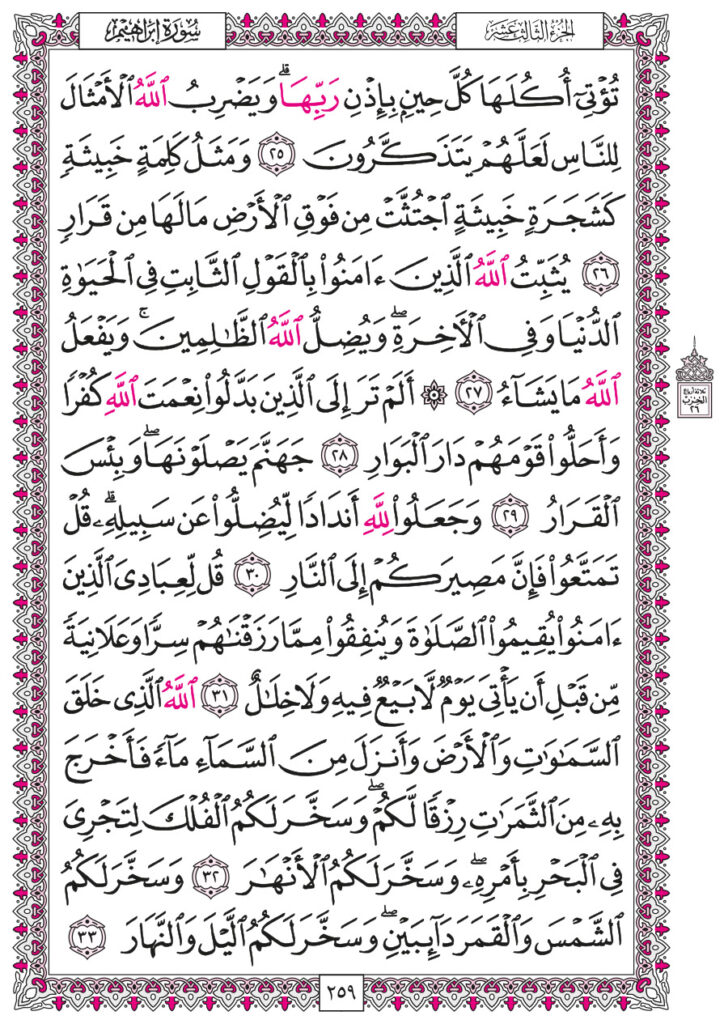 سُورَةُ إِبْرَاهِيمَ
الجُزْءُ الثَّالِثَ عَشَرَ
تُؤْتِىٓ أُكُلَهَا كُلَّ حِينٍۭ بِإِذْنِ رَبِّهَاۗ وَيَضْرِبُ ٱللَّهُ ٱلْأَمْثَالَ
لِلنَّاسِ لَعَلَّهُمْ يَتَذَكَّرُونَ ۝٢٥ وَمَثَلُ كَلِمَةٍ خَبِيثَةٍ
كَشَجَرَةٍ خَبِيثَةٍ ٱجْتُثَّتْ مِن فَوْقِ ٱلْأَرْضِ مَا لَهَا مِن قَرَارٍ
۝٢٦ يُثَبِّتُ ٱللَّهُ ٱلَّذِينَ ءَامَنُوا۟ بِٱلْقَوْلِ ٱلثَّابِتِ فِى ٱلْحَيَوٰةِ
ٱلدُّنْيَا وَفِى ٱلْءَاخِرَةِۖ وَيُضِلُّ ٱللَّهُ ٱلظَّـٰلِمِينَۚ وَيَفْعَلُ
ٱللَّهُ مَا يَشَآءُ ۝٢٧ ۞ أَلَمْ تَرَ إِلَى ٱلَّذِينَ بَدَّلُوا۟ نِعْمَتَ ٱللَّهِ كُفْرًا
وَأَحَلُّوا۟ قَوْمَهُمْ دَارَ ٱلْبَوَارِ ۝٢٨ جَهَنَّمَ يَصْلَوْنَهَاۖ وَبِئْسَ
ٱلْقَرَارُ ۝٢٩ وَجَعَلُوا۟ لِلَّهِ أَندَادًا لِّيُضِلُّوا۟ عَن سَبِيلِهِۦۗ قُلْ
تَمَتَّعُوا۟ فَإِنَّ مَصِيرَكُمْ إِلَى ٱلنَّارِ ۝٣٠ قُل لِّعِبَادِىَ ٱلَّذِينَ
ءَامَنُوا۟ يُقِيمُوا۟ ٱلصَّلَوٰةَ وَيُنفِقُوا۟ مِمَّا رَزَقْنَـٰهُمْ سِرًّا وَعَلَانِيَةً
مِّن قَبْلِ أَن يَأْتِىَ يَوْمٌ لَّا بَيْعٌ فِيهِ وَلَا خِلَـٰلٌ ۝٣١ ٱللَّهُ ٱلَّذِى خَلَقَ
ٱلسَّمَـٰوَٰتِ وَٱلْأَرْضَ وَأَنزَلَ مِنَ ٱلسَّمَآءِ مَآءً فَأَخْرَجَ
بِهِۦ مِنَ ٱلثَّمَرَٰتِ رِزْقًا لَّكُمْۖ وَسَخَّرَ لَكُمُ ٱلْفُلْكَ لِتَجْرِىَ
فِى ٱلْبَحْرِ بِأَمْرِهِۦۖ وَسَخَّرَ لَكُمُ ٱلْأَنْهَـٰرَ ۝٣٢ وَسَخَّرَ لَكُمُ
ٱلشَّمْسَ وَٱلْقَمَرَ دَآئِبَيْنِۖ وَسَخَّرَ لَكُمُ ٱلَّيْلَ وَٱلنَّهَارَ ۝٣٣
ثلاثة أرباع
الحزب
٢٦
٢٥٩